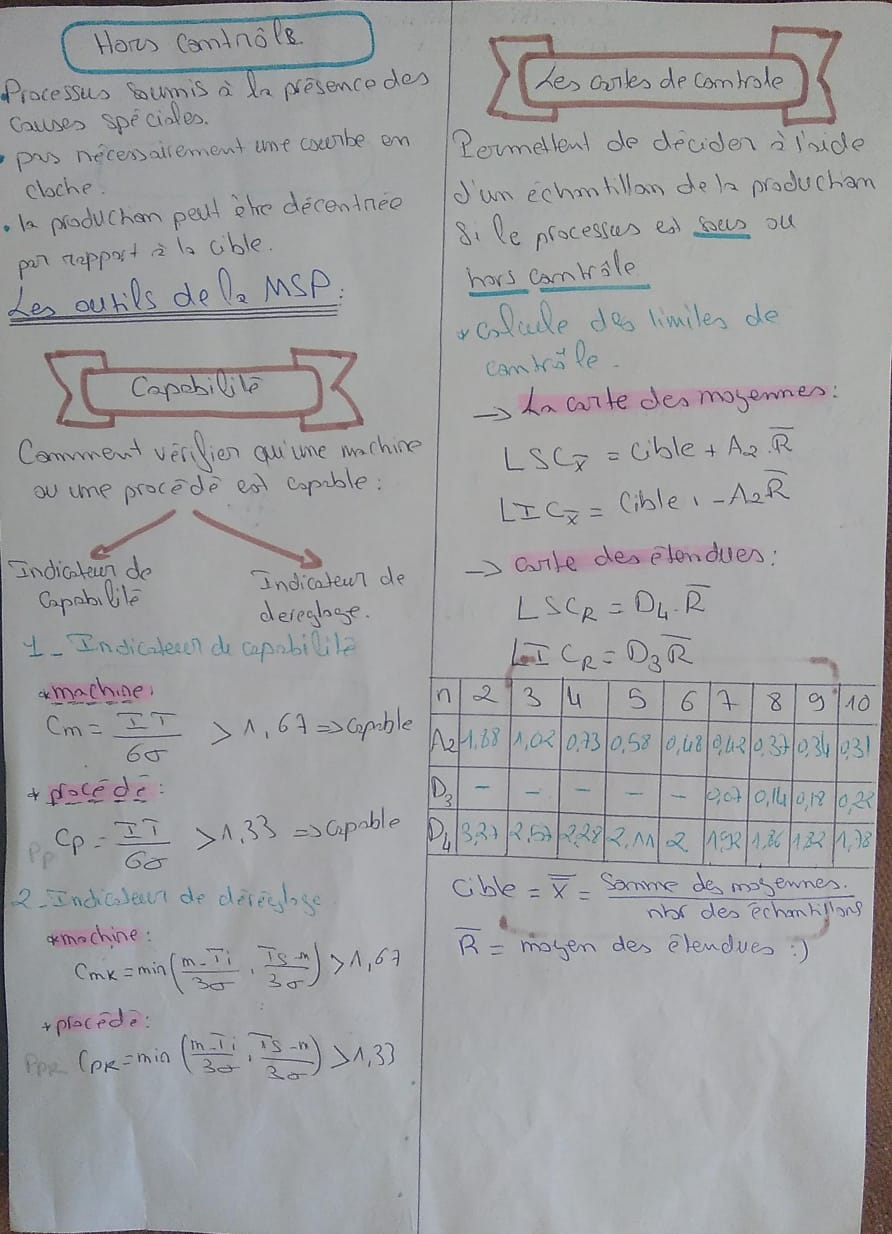 Hors contrôle
• Processus soumis à la présence des
causes spéciales.
• pas nécessairement une courbe en
cloche.
• la production peut être décentrée
par rapport à la cible.
Les outils de la MSP :
Capabilité
Comment vérifier qu'une machine
ou une procédé est capable :
Indicateur de
Capabilité
Indicateur de
dereglage.
1 - Indicateur de capabilité
* machine :
Cm = IT / 6σ > 1,67 => Capable
* procédé :
Pp Cp = IT / 6σ > 1,33 => Capable
2 - Indicateur de déréglage
* machine :
Cmk = min ( m-Ti / 3σ , Ts-m / 3σ ) > 1,67
* procédé :
Ppk Cpk = min ( m-Ti / 3σ , Ts-m / 3σ ) > 1,33
Les cartes de controle
Permettent de décider à l'aide
d'un échantillon de la production
Si le processus est sous ou
hors contrôle
* calcule des limites de
contrôle.
→ La carte des moyennes :
LSC x̅ = Cible + A2 . R̅
LIC x̅ = Cible - A2 R̅
→ carte des étendues :
LSC R = D4 . R̅
LIC R = D3 R̅
n 2 3 4 5 6 7 8 9 10
A2 1,88 1,02 0,73 0,58 0,48 0,42 0,37 0,34 0,31
D3 - - - - - 0,07 0,14 0,18 0,22
D4 3,27 2,57 2,28 2,11 2 1,92 1,86 1,82 1,78
Cible = X̿ = Somme des moyennes. / nbr des échantillons
R̅ = moyen des étendues :)